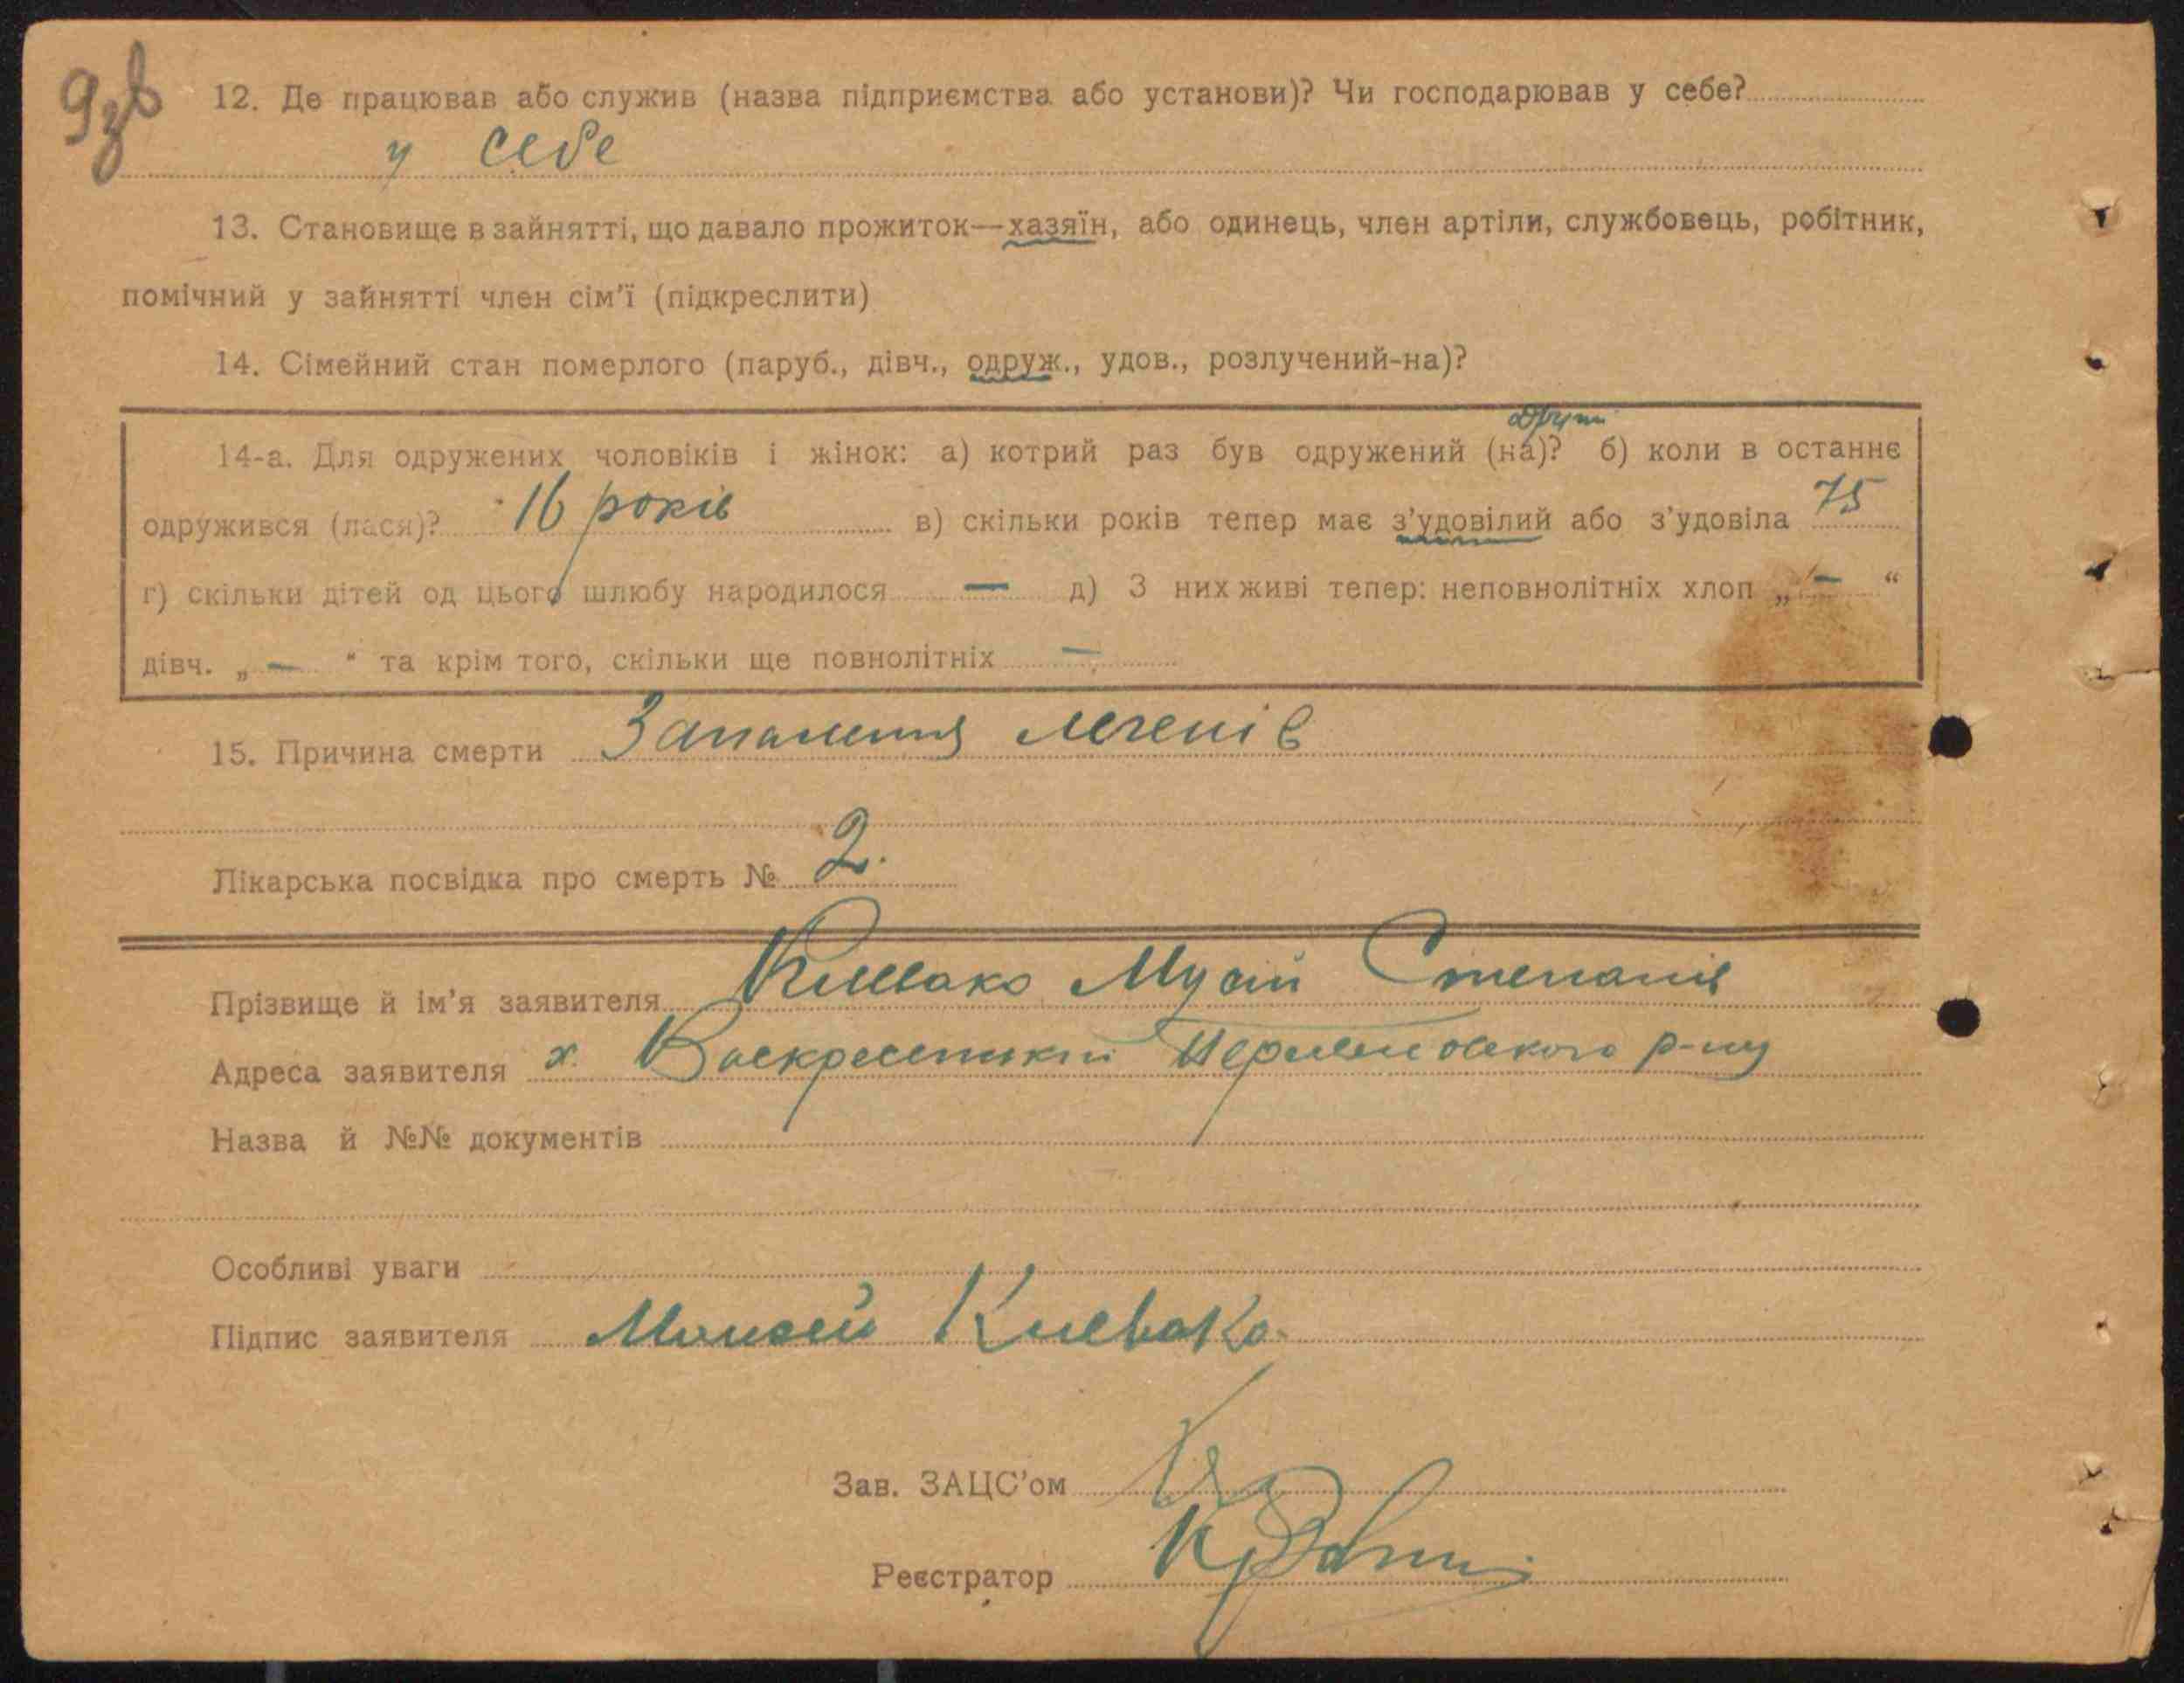 9зв
12. Де працював або служив (назва підприємства або установи)? Чи господарював у себе?
у себе
13. Становище в зайнятті, що давало прожиток—хазяїн, або одинець, член артіли, службовець, робітник,
помічний у зайнятті член сім'ї (підкреслити)
14. Сімейний стан померлого (паруб., дівч., одруж., удов., розлучений-на)?
14-а. Для одружених чоловіків і жінок: а) котрий раз був одружений (на)? б) коли в останнє
одружився (лася)? 16 років в) скільки років тепер має з'удовілий або з'удовіла 75
г) скільки дітей од цього шлюбу народилося — д) З них живі тепер: неповнолітніх хлоп „ — “
дівч. „ — “ та крім того, скільки ще повнолітніх —
15. Причина смерти Запалення легенів
Лікарська посвідка про смерть № 2.
Прізвище й ім'я заявителя Клевако Мусій Степанів
Адреса заявителя х. р-ну
Назва й №№ документів
Особливі уваги
Підпис заявителя Моисей Клевако.
Зав. ЗАЦС'ом
Реєстратор